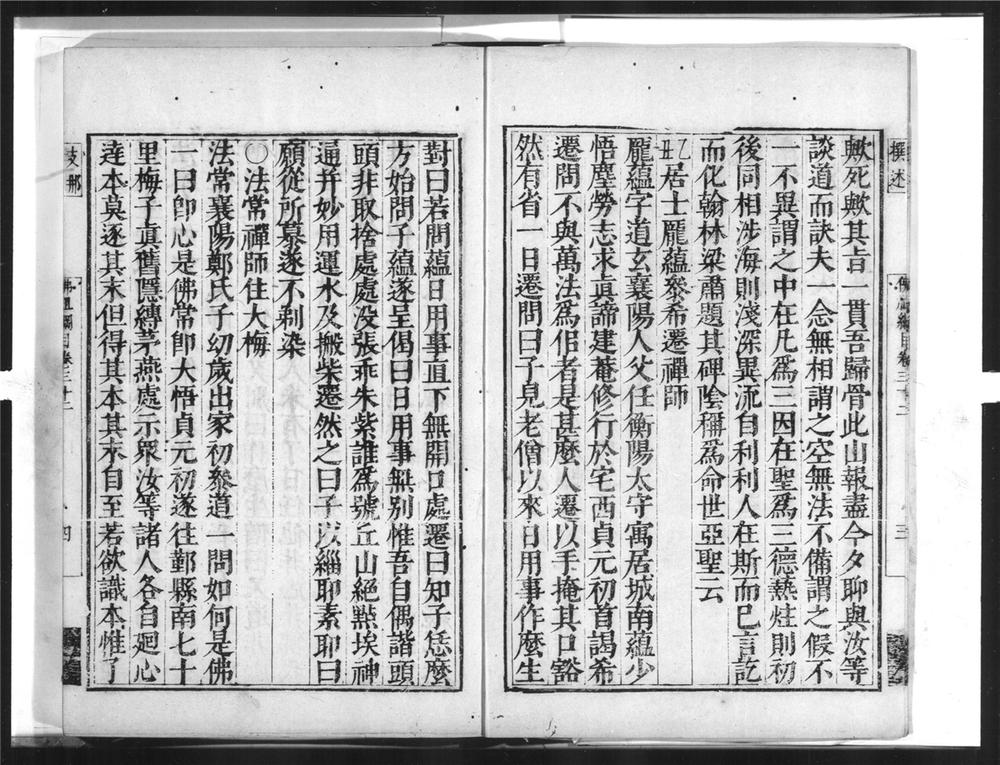 撰述
佛祖綱目卷三十二
三
歟死歟其旨一貫吾歸骨此山報盡今夕聊與汝等
談道而訣夫一念無相謂之空無法不備謂之假不
一不異謂之中在凡爲三因在聖爲三德爇炷則初
後同相涉海則淺深異流自利利人在斯而已言訖
而化翰林梁肅題其碑陰稱爲命世亞聖云
丑乙居士龐蘊參希遷禪師
龐蘊字道玄襄陽人父任衡陽太守寓居城南蘊少
悟塵勞志求眞諦建菴修行於宅西貞元初首謁希
遷問不與萬法爲侶者是甚麼人遷以手掩其口豁
然有省一日遷問曰子見老僧以來日用事作麼生
對曰若問蘊日用事直下無開口處遷曰知子恁麼
方始問子蘊遂呈偈曰日用事無別惟吾自偶諧頭
頭非取捨處處没張乖朱紫誰爲號丘山絕點埃神
通并妙用運水及搬柴遷然之曰子以緇耶素耶曰
願從所慕遂不剃染
○法常禪師住大梅
法常襄陽鄭氏子幼歲出家初參道一問如何是佛
一曰卽心是佛常卽大悟貞元初遂往鄞縣南七十
里梅子眞舊隱縛茅燕處示衆汝等諸人各自廻心
達本莫逐其末但得其本其末自至若欲識本惟了
支那
佛祖綱目卷三十二
四